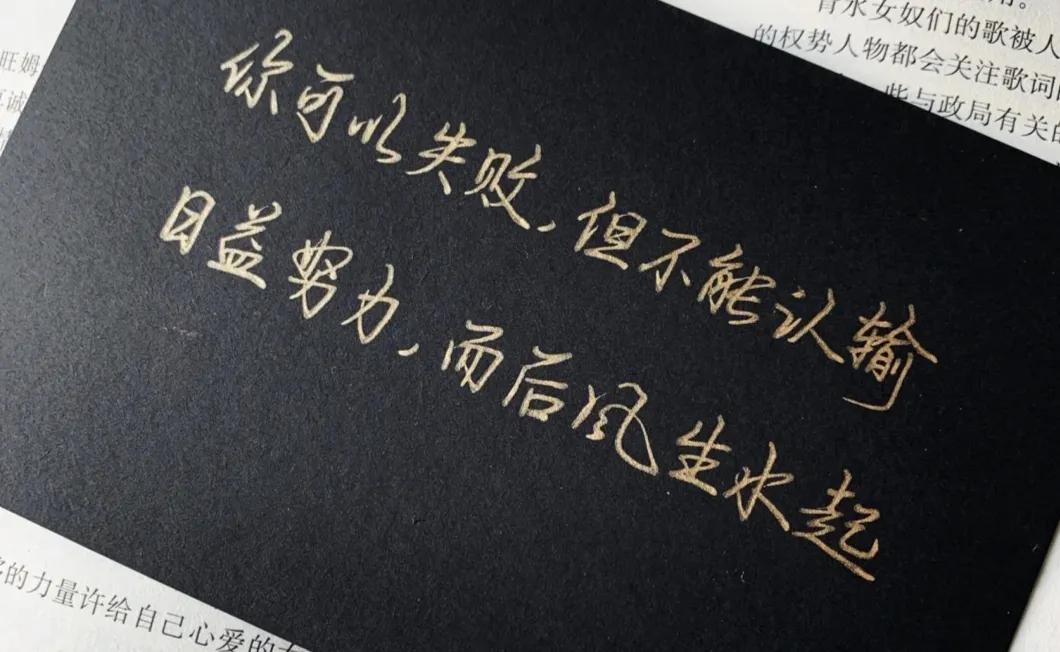 用。
音乐女奴们的歌被人
的权势人物都会关注歌词
些与政局有关的
旺姆
真诚
你可以失败，但不能认输
日益努力，而后风生水起
的力量许给自己心爱的